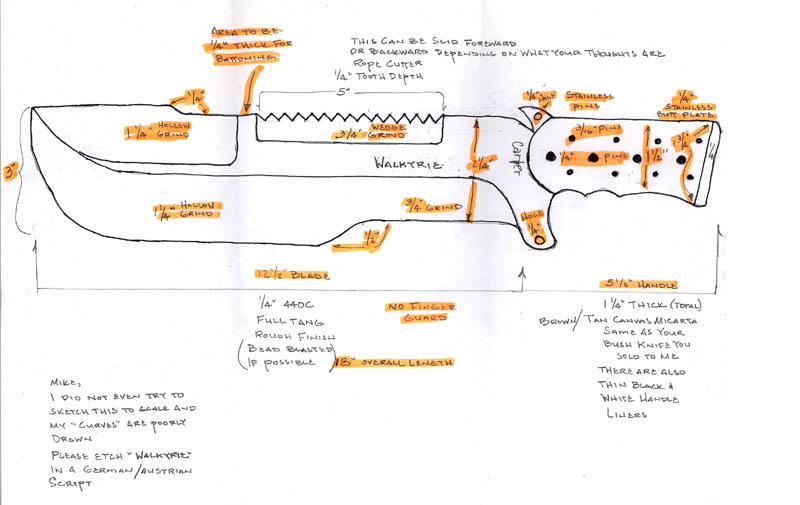 AREA TO BE
1/4" THICK FOR
BATTONING
THIS CAN BE SLID FOREWARD
OR BACKWARD DEPENDING ON WHAT YOUR THOUGHTS ARE
ROPE CUTTER
1/4" TOOTH DEPTH
5"
3/4"
1/4" HOLE
STAINLESS
PINS
1/4"
STAINLESS
BUTT PLATE
1 1/4" HOLLOW
GRIND
3/4" WEDGE
GRIND
3/16" PINS
1/4" PINS
1 1/2"
1/4
3"
WALKYRIE
2 1/4
Camper
1 1/4" HOLLOW
GRIND
3/4" GRIND
1/2"
HOLE
1/4"
12 1/2" BLADE
5 1/2" HANDLE
1/4" 440C
FULL TANG
ROUGH FINISH
(BEAD BLASTED
IF POSSIBLE)
NO FINGER
GUARD
18" OVERALL LENGTH
1 1/4" THICK (TOTAL)
BROWN/TAN CANVAS MICARTA
SAME AS YOUR
BUSH KNIFE YOU
SOLD TO ME
THERE ARE ALSO
THIN BLACK &
WHITE HANDLE
LINERS
MIKE,
I DID NOT EVEN TRY TO
SKETCH THIS TO SCALE AND
MY "CURVES" ARE POORLY
DRAWN
PLEASE ETCH "WALKYRIE"
IN A GERMAN/AUSTRIAN
SCRIPT